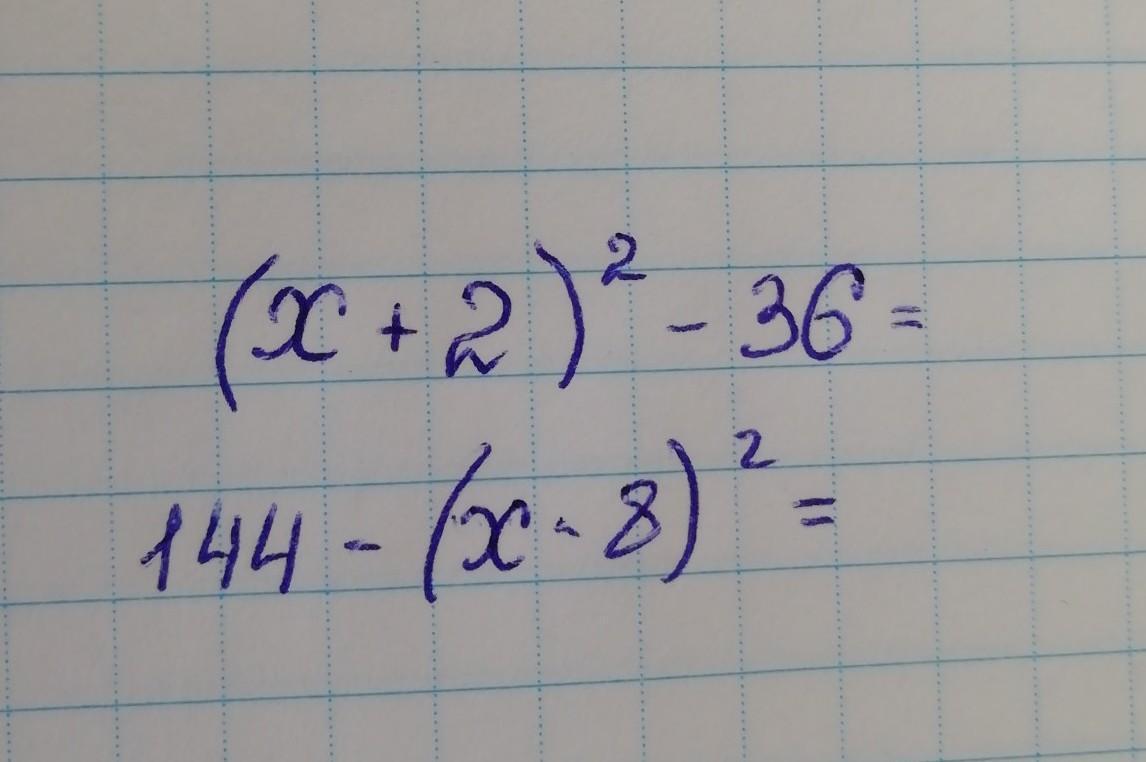 (x + 2)² - 36 =
144 - (x - 8)² =